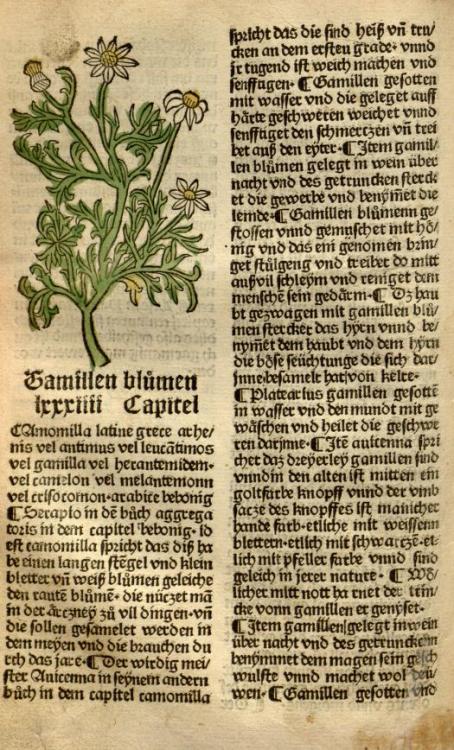 Gamillen blůmen
lxxxiiii Capitel
CAmomilla latine grece arthe/
nis vel antimus vel leucātimos
vel gamilla vel herantemidem·
vel camelon vel melantemonn
vel crisocomon·arabice bebonig
¶Serapio in dē bůch aggrega
toris in dem capitel bebonig· id
est camomilla spricht das diß ha
be einen langen stēgel vnd klein
bletter vñ weiß blůmen geleiche
den rautē blůmē· die nüczet mā
in der ärczney zů vil dingen·vñ
die sollen gesamelet werden in
dem meyen vnd die brauchen du
rch das jare·¶Der wirdig mei/
ster Auicenna in seynem andern
bůch in dem capitel camomilla
spricht das die sind heiß vñ tru/
cken an dem ersten grade· vnnd
jr tugend ist weich machen vnd
senfftigen·¶Gamillen gesotten
mit wasser vnd die geleget auff
hårte geschweren weichet vnnd
senfftiget den schmertzen vñ trei
bet auß den eyter·¶Jtem gamil/
len blůmen gelegt in wein über
nacht vnd des getruncken sterck
et die gewerbe vnd benym̄et die
lemde·¶Gamillen blůmenn ge/
stossen vnnd gemuschet mit hö/
nig vnd das ein genomen brin/
get stůlgeng vnd treibet do mitt
auß vil schleym vnd reniget dem
menschē sein gedärm·¶Dz hau
bt gezwagen mit gamillen blů/
men stercket das hyrn vnnd be/
nym̄et dem haubt vnd dem hyrn
die böse feüchtunge die sich dar/
jnne besamelt hat von kelte·
¶Platearius gamillen gesottē
in wasser vnd den mundt mit ge
wäschen vnd heilet die geschwe
ren darjnne·¶Jtē auicenna spri
chet daz dreyerley gamillen sind
vnnd in den alten ist mitten ein
goltfarbe knopff vnnd der vmb
sacze des knopffes ist mancher
hande farb·etliche mit weissenn
blettern·etlich mit schwarczē·et/
lich mit pfeller farbe vnnd sind
geleich in jerer nature·¶Wö/
licher mitt nott hartnet der trin/
cke vonn gamillen er genyset·
¶Jtem gamillen gelegt in wein
über nacht vnd des getrunckenn
benymmet dem magen sein gesch
wulste vnnd machet wol deü/
wen·¶Gamillen gesotten vnd